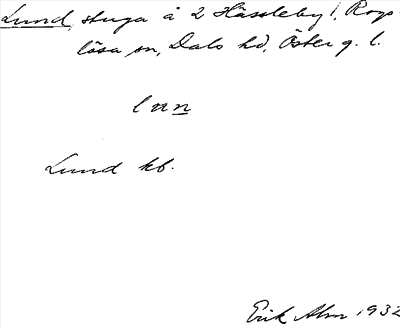 Lund, stuga å 2 Hässleby!, Rogs-
lösa sn, Dals hd, Österg. l.
lun
Lund kb.
Erik Alm 1932